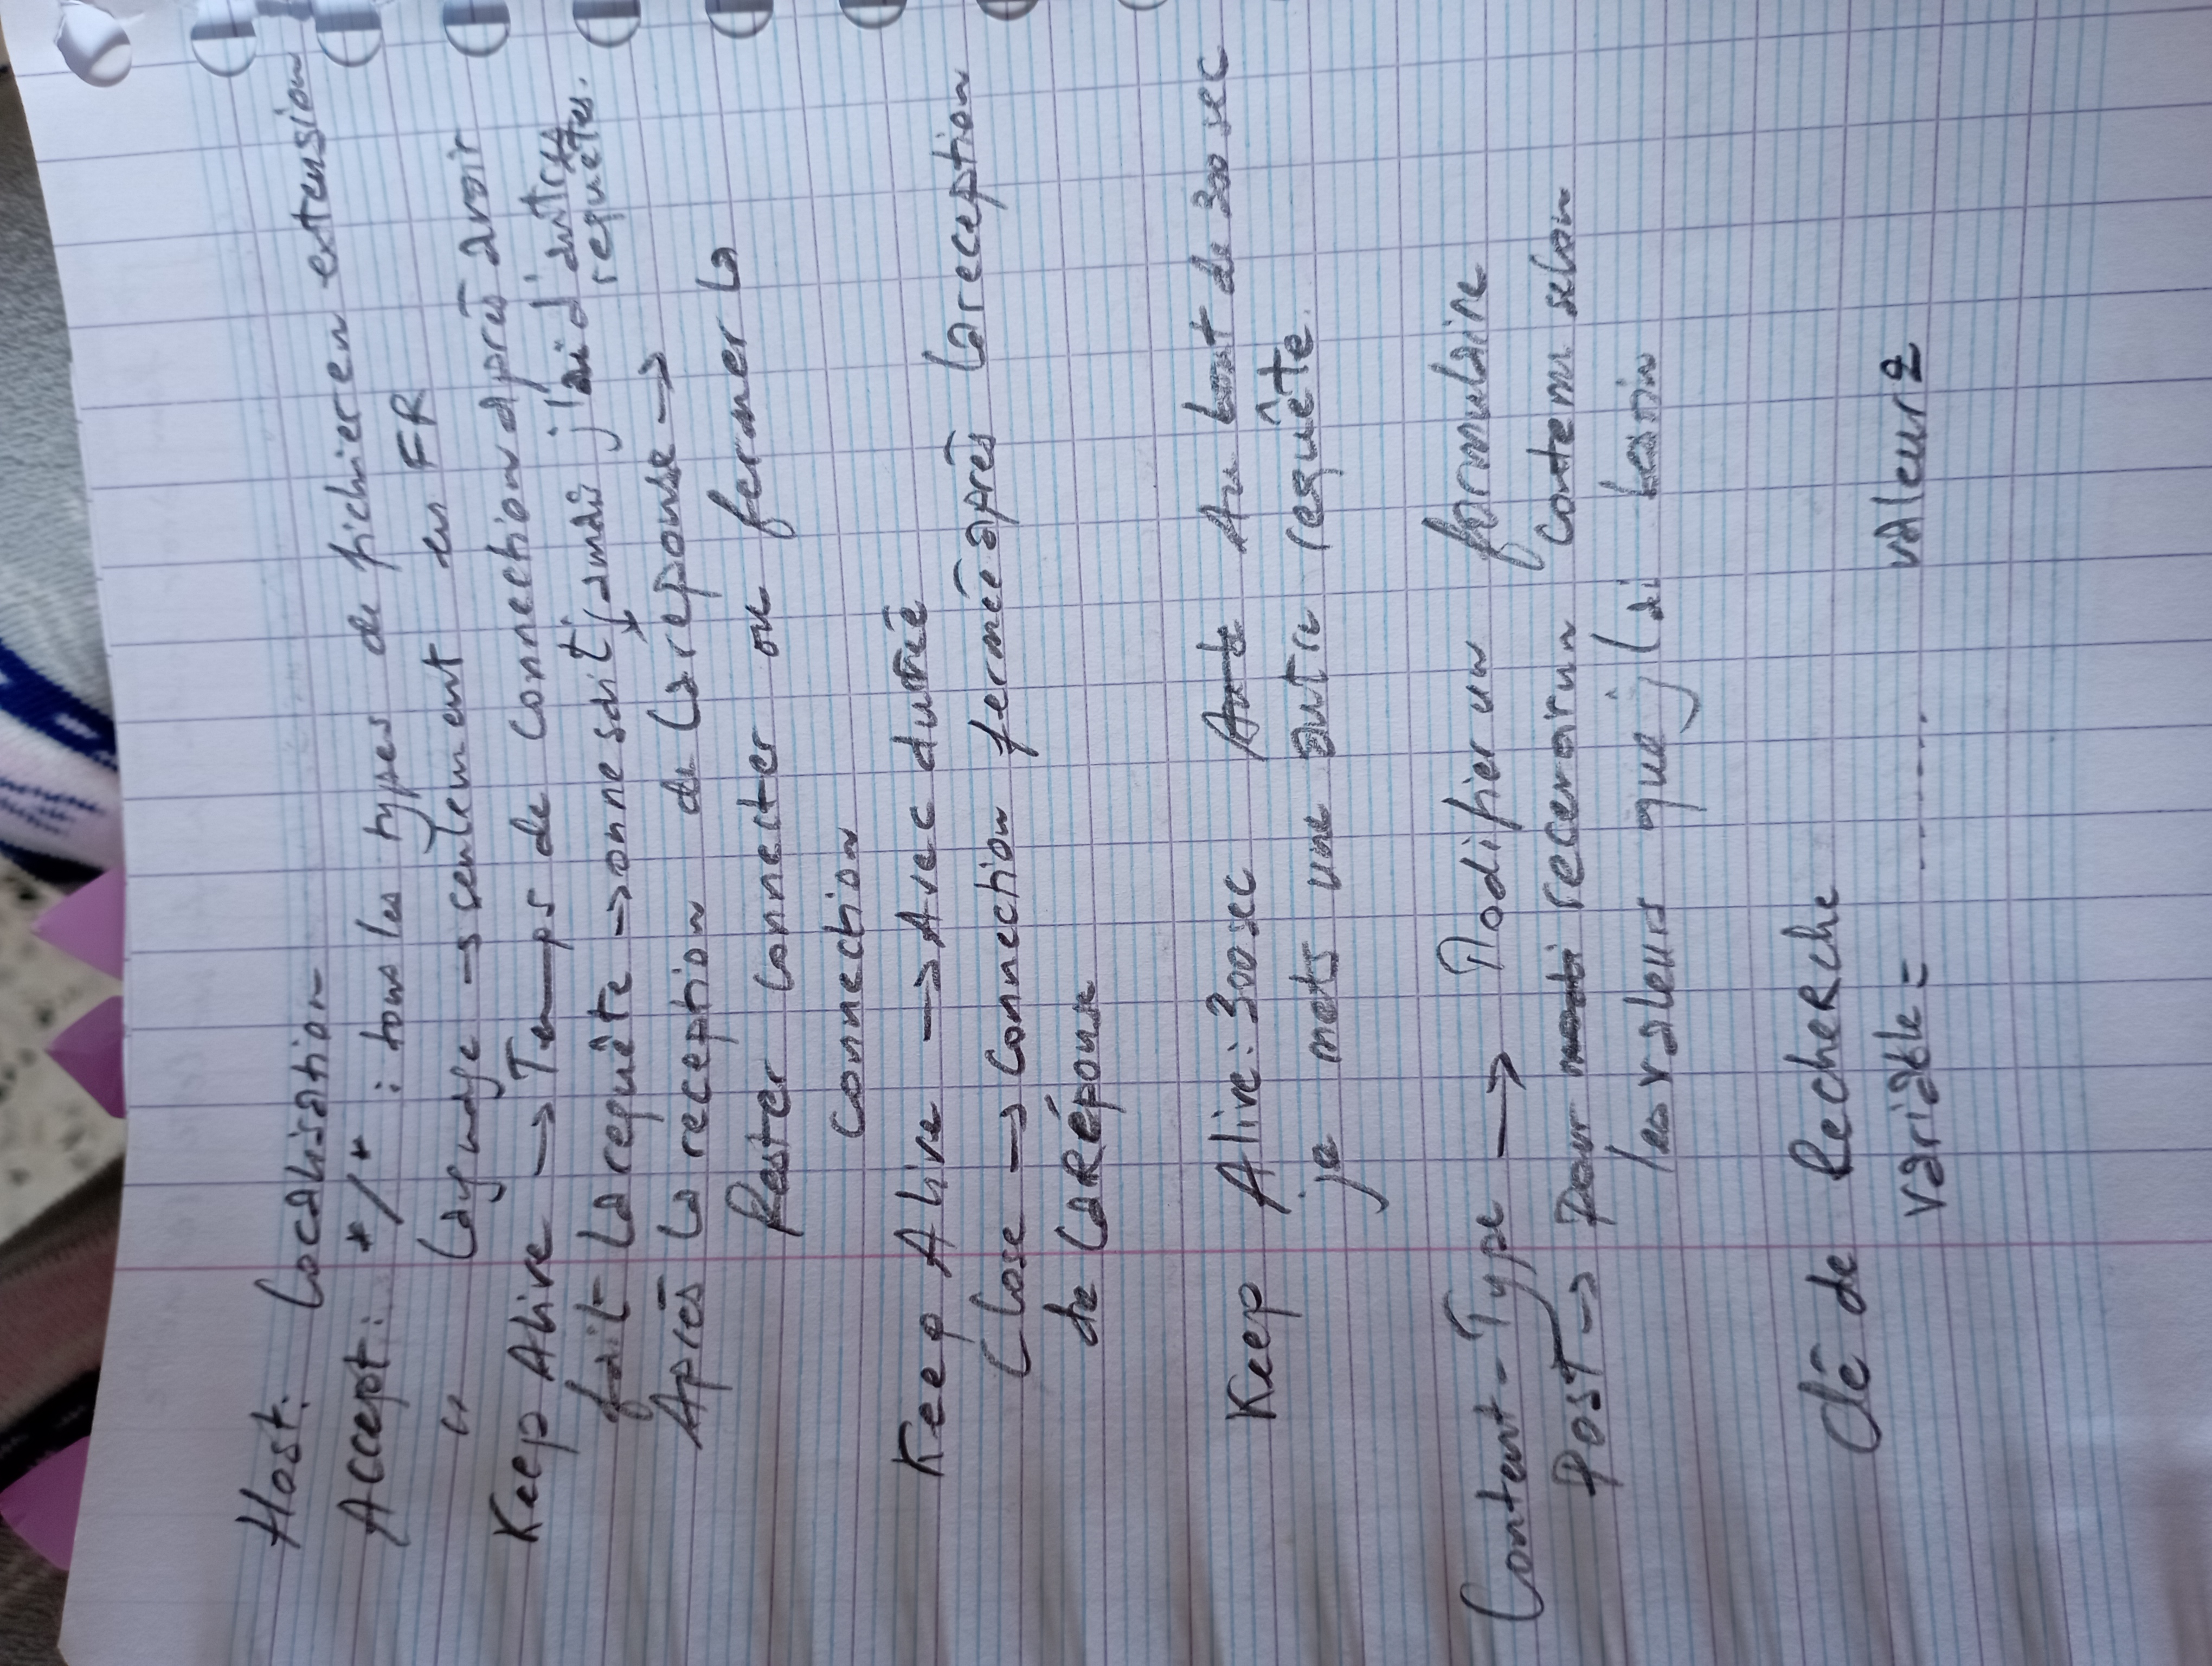 Host: Localisation
Accept: */* : tous les types de fichier en extension
" Language → seulement en FR
Keep Alive → Temps de connection après avoir
fait la requête → on ne sait jamais j'ai d'autres requêtes.
Après la reception de la reponse →
Rester connecter ou fermer la
connection
Keep Alive → Avec durée
Close → Connection fermé après la reception
de la Réponse
Keep Alive: 300sec Au bout de 300 sec
je mets une autre requête.
Content-Type → Modifier un formulaire
Post → pour recevoir un contenu selon
les valeurs que j'ai besoin
Clé de RecheRche
variable = ........ valeur 2